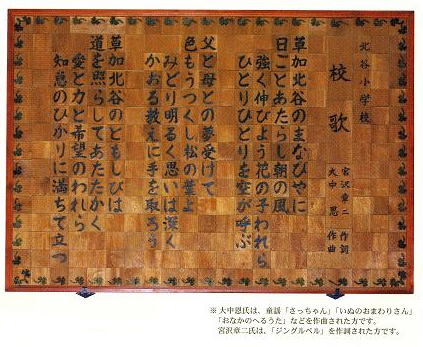 北谷小学校
校歌
宮沢章二 作詞
大中恩 作曲
草加北谷のまなびやに
日ごとあたらし朝の風
強く伸びよう花の子われら
ひとりひとりを空が呼ぶ
父と母との夢受けて
色もうつくし松の葉よ
みどり明るく思いは深く
かおる教えに手を取ろう
草加北谷のともしびは
道を照らしてあたたかく
愛と力と希望のわれら
知恵のひかりに満ちて立つ
※大中恩氏は、童謡「さっちゃん」「いぬのおまわりさん」
「おなかのへるうた」などを作曲された方です。
宮沢章二氏は、「ジングルベル」を作詞された方です。